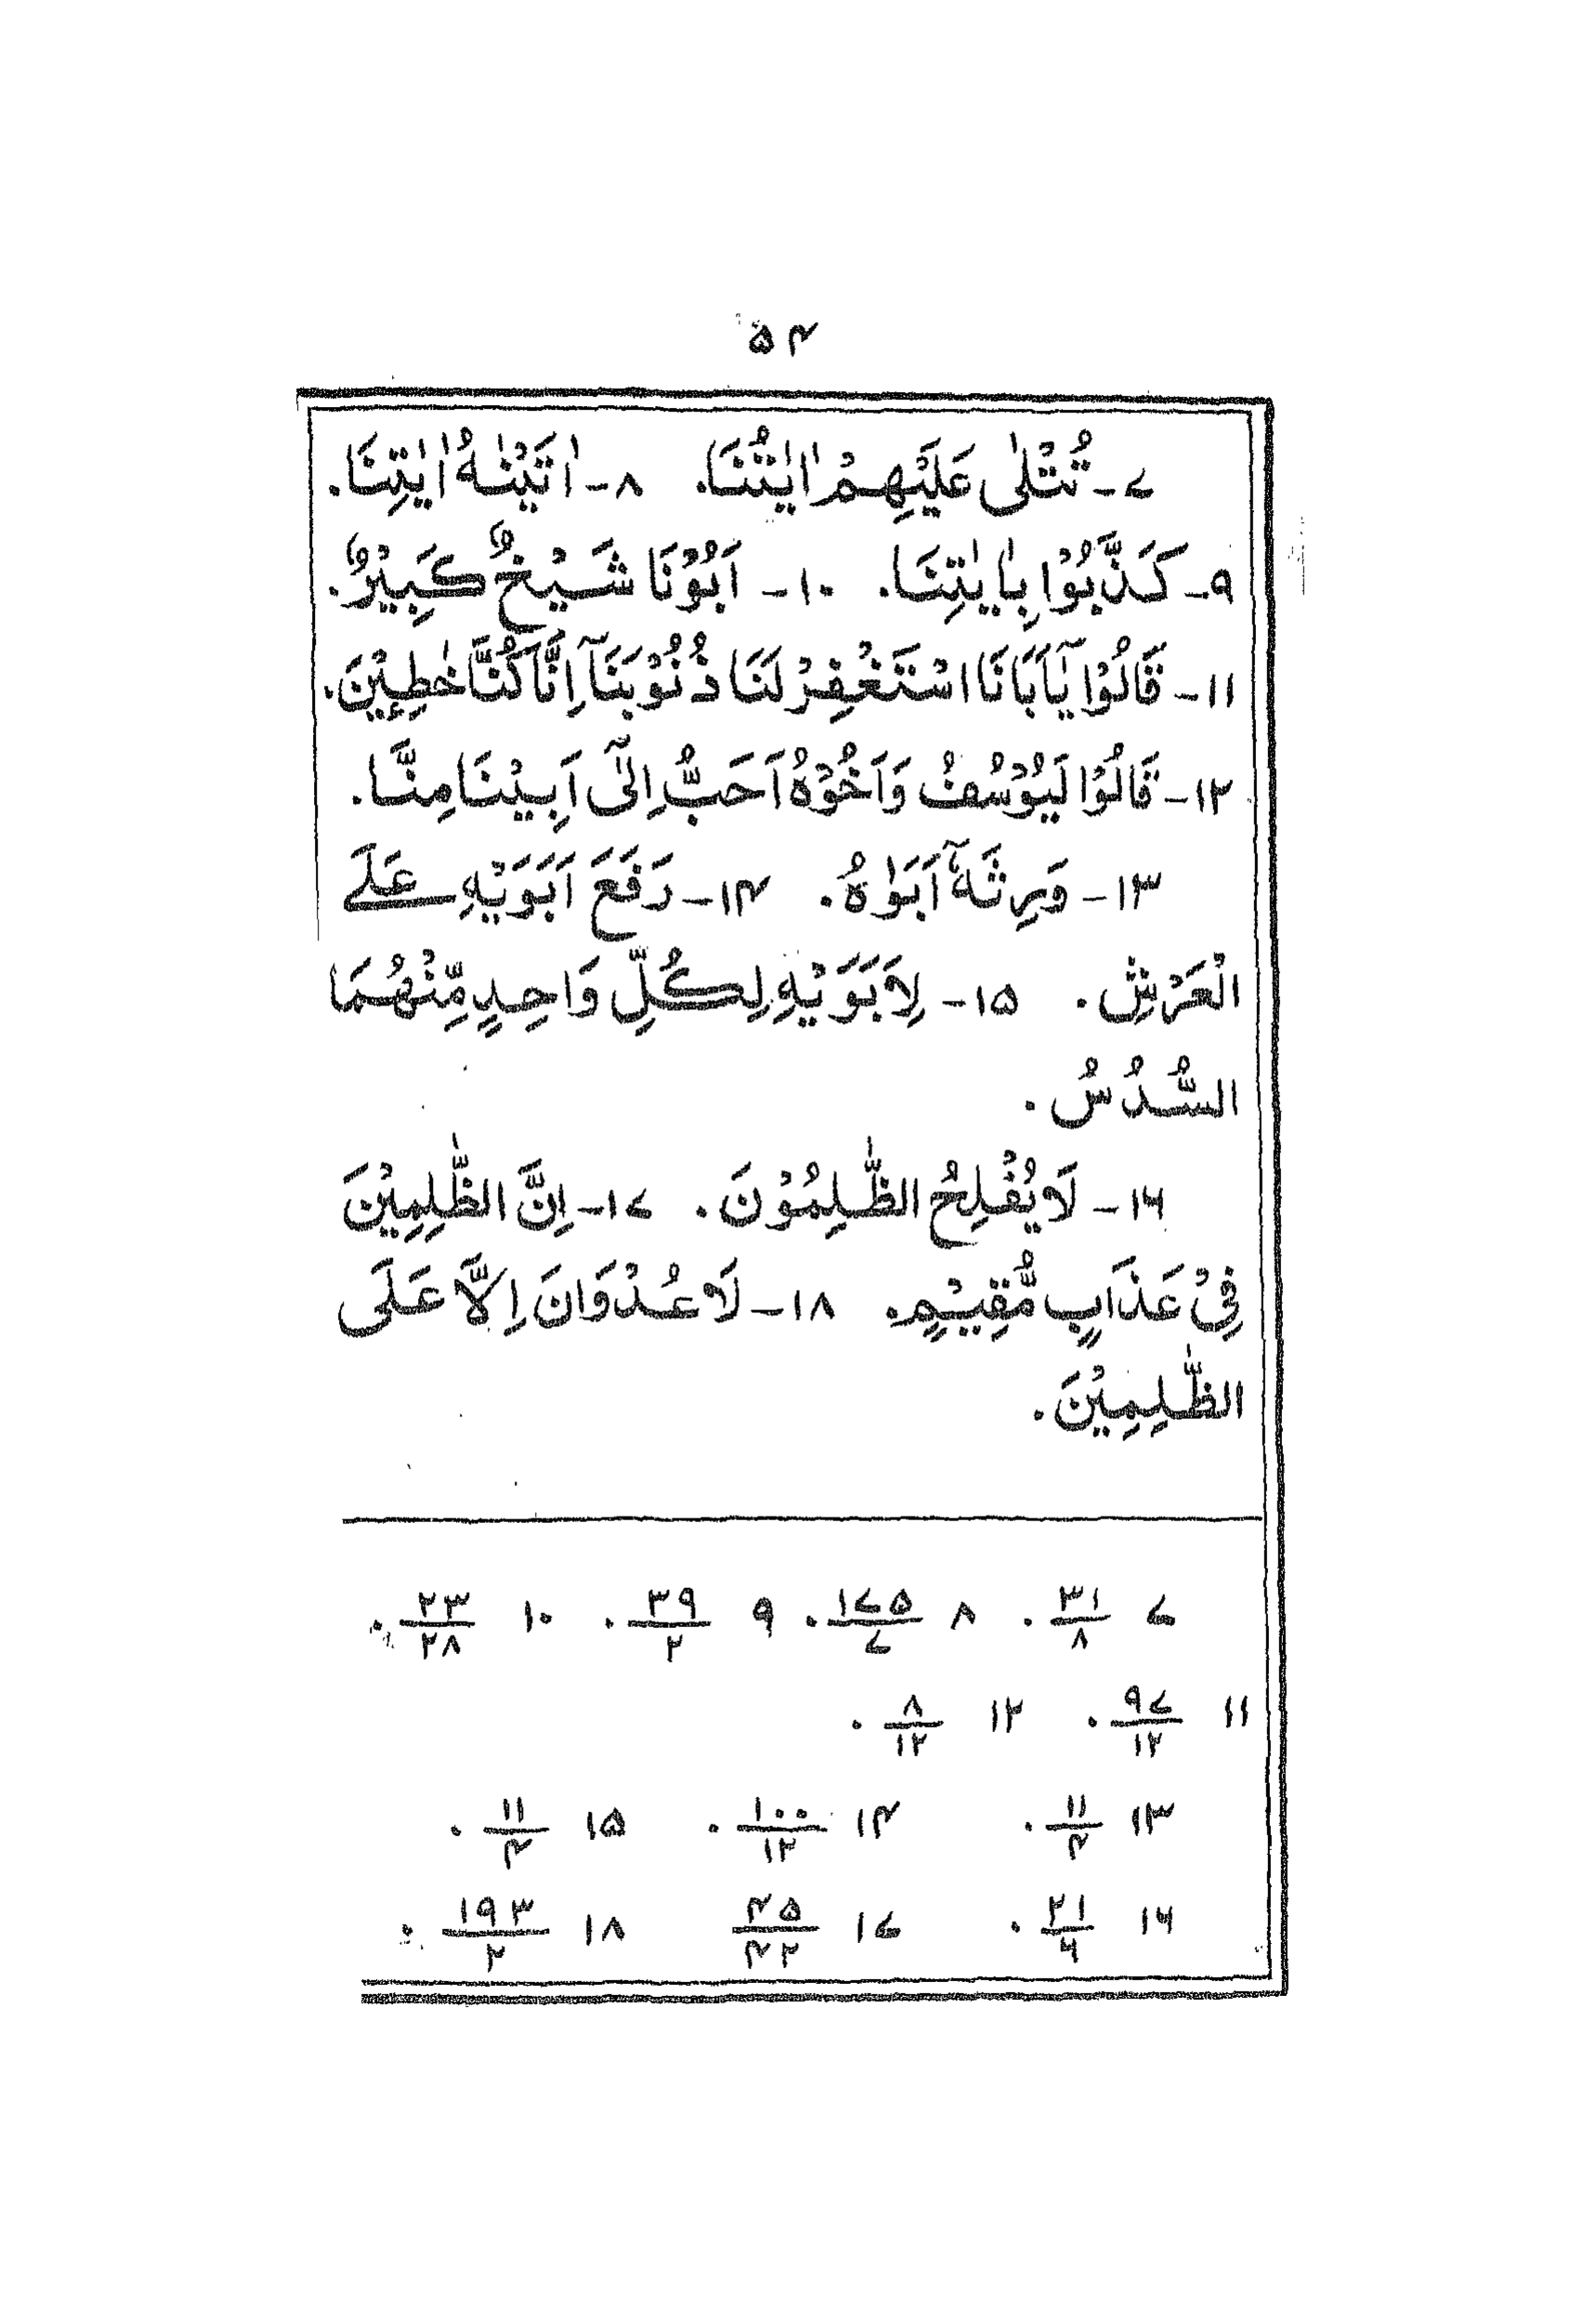 ۵۴
۷- تُتْلٰى عَلَيْهِمْ اٰيٰتُنَا. ۸- اٰتَيْنٰهُ اٰيٰتِنَا.
۹- كَذَّبُوْا بِاٰيٰتِنَا. ۱۰- اَبُوْنَا شَيْخٌ كَبِيْرٌ.
۱۱- قَالُوْا يٰٓاَبَانَا اسْتَغْفِرْ لَنَا ذُنُوْبَنَآ اِنَّا كُنَّا خٰطِـِٕيْنَ.
۱۲- قَالُوْا لَيُوْسُفُ وَاَخُوْهُ اَحَبُّ اِلٰٓى اَبِيْنَا مِنَّا.
۱۳- وَرِثَهٗٓ اَبَوٰهُ. ۱۴- رَفَعَ اَبَوَيْهِ عَلَے
الْعَرْشِ. ۱۵- لِاَبَوَيْهِ لِكُلِّ وَاحِدٍ مِّنْهُمَا
السُّدُسُ.
۱۶- لَا يُفْلِحُ الظّٰلِمُوْنَ. ۱۷- اِنَّ الظّٰلِمِيْنَ
فِيْ عَذَابٍ مُّقِيْمٍ. ۱۸- لَا عُدْوَانَ اِلَّا عَلَى
الظّٰلِمِيْنَ.
۷ ۳۱/۸. ۸ ۱۷۵/۷. ۹ ۳۹/۲. ۱۰ ۲۳/۲۸.
۱۱ ۹۷/۱۲. ۱۲ ۸/۱۲.
۱۳ ۱۱/۴. ۱۴ ۱۰۰/۱۲. ۱۵ ۱۱/۴.
۱۶ ۲۱/۶. ۱۷ ۴۵/۴۲ ۱۸ ۱۹۳/۲.